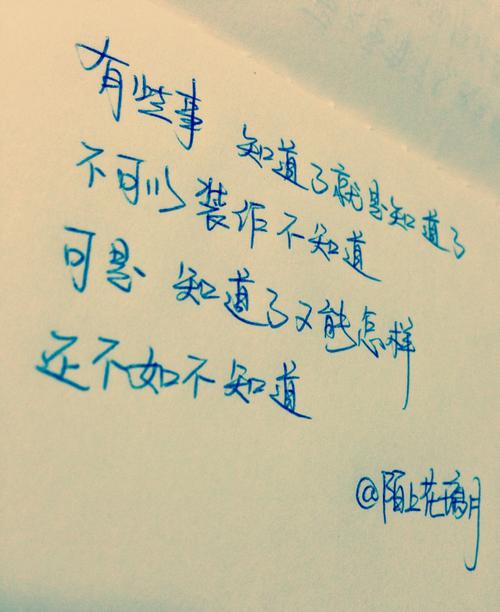 有些事 知道了就是知道了
不可以装作不知道
可是 知道了又能怎样
还不如不知道
@陌上花璃月